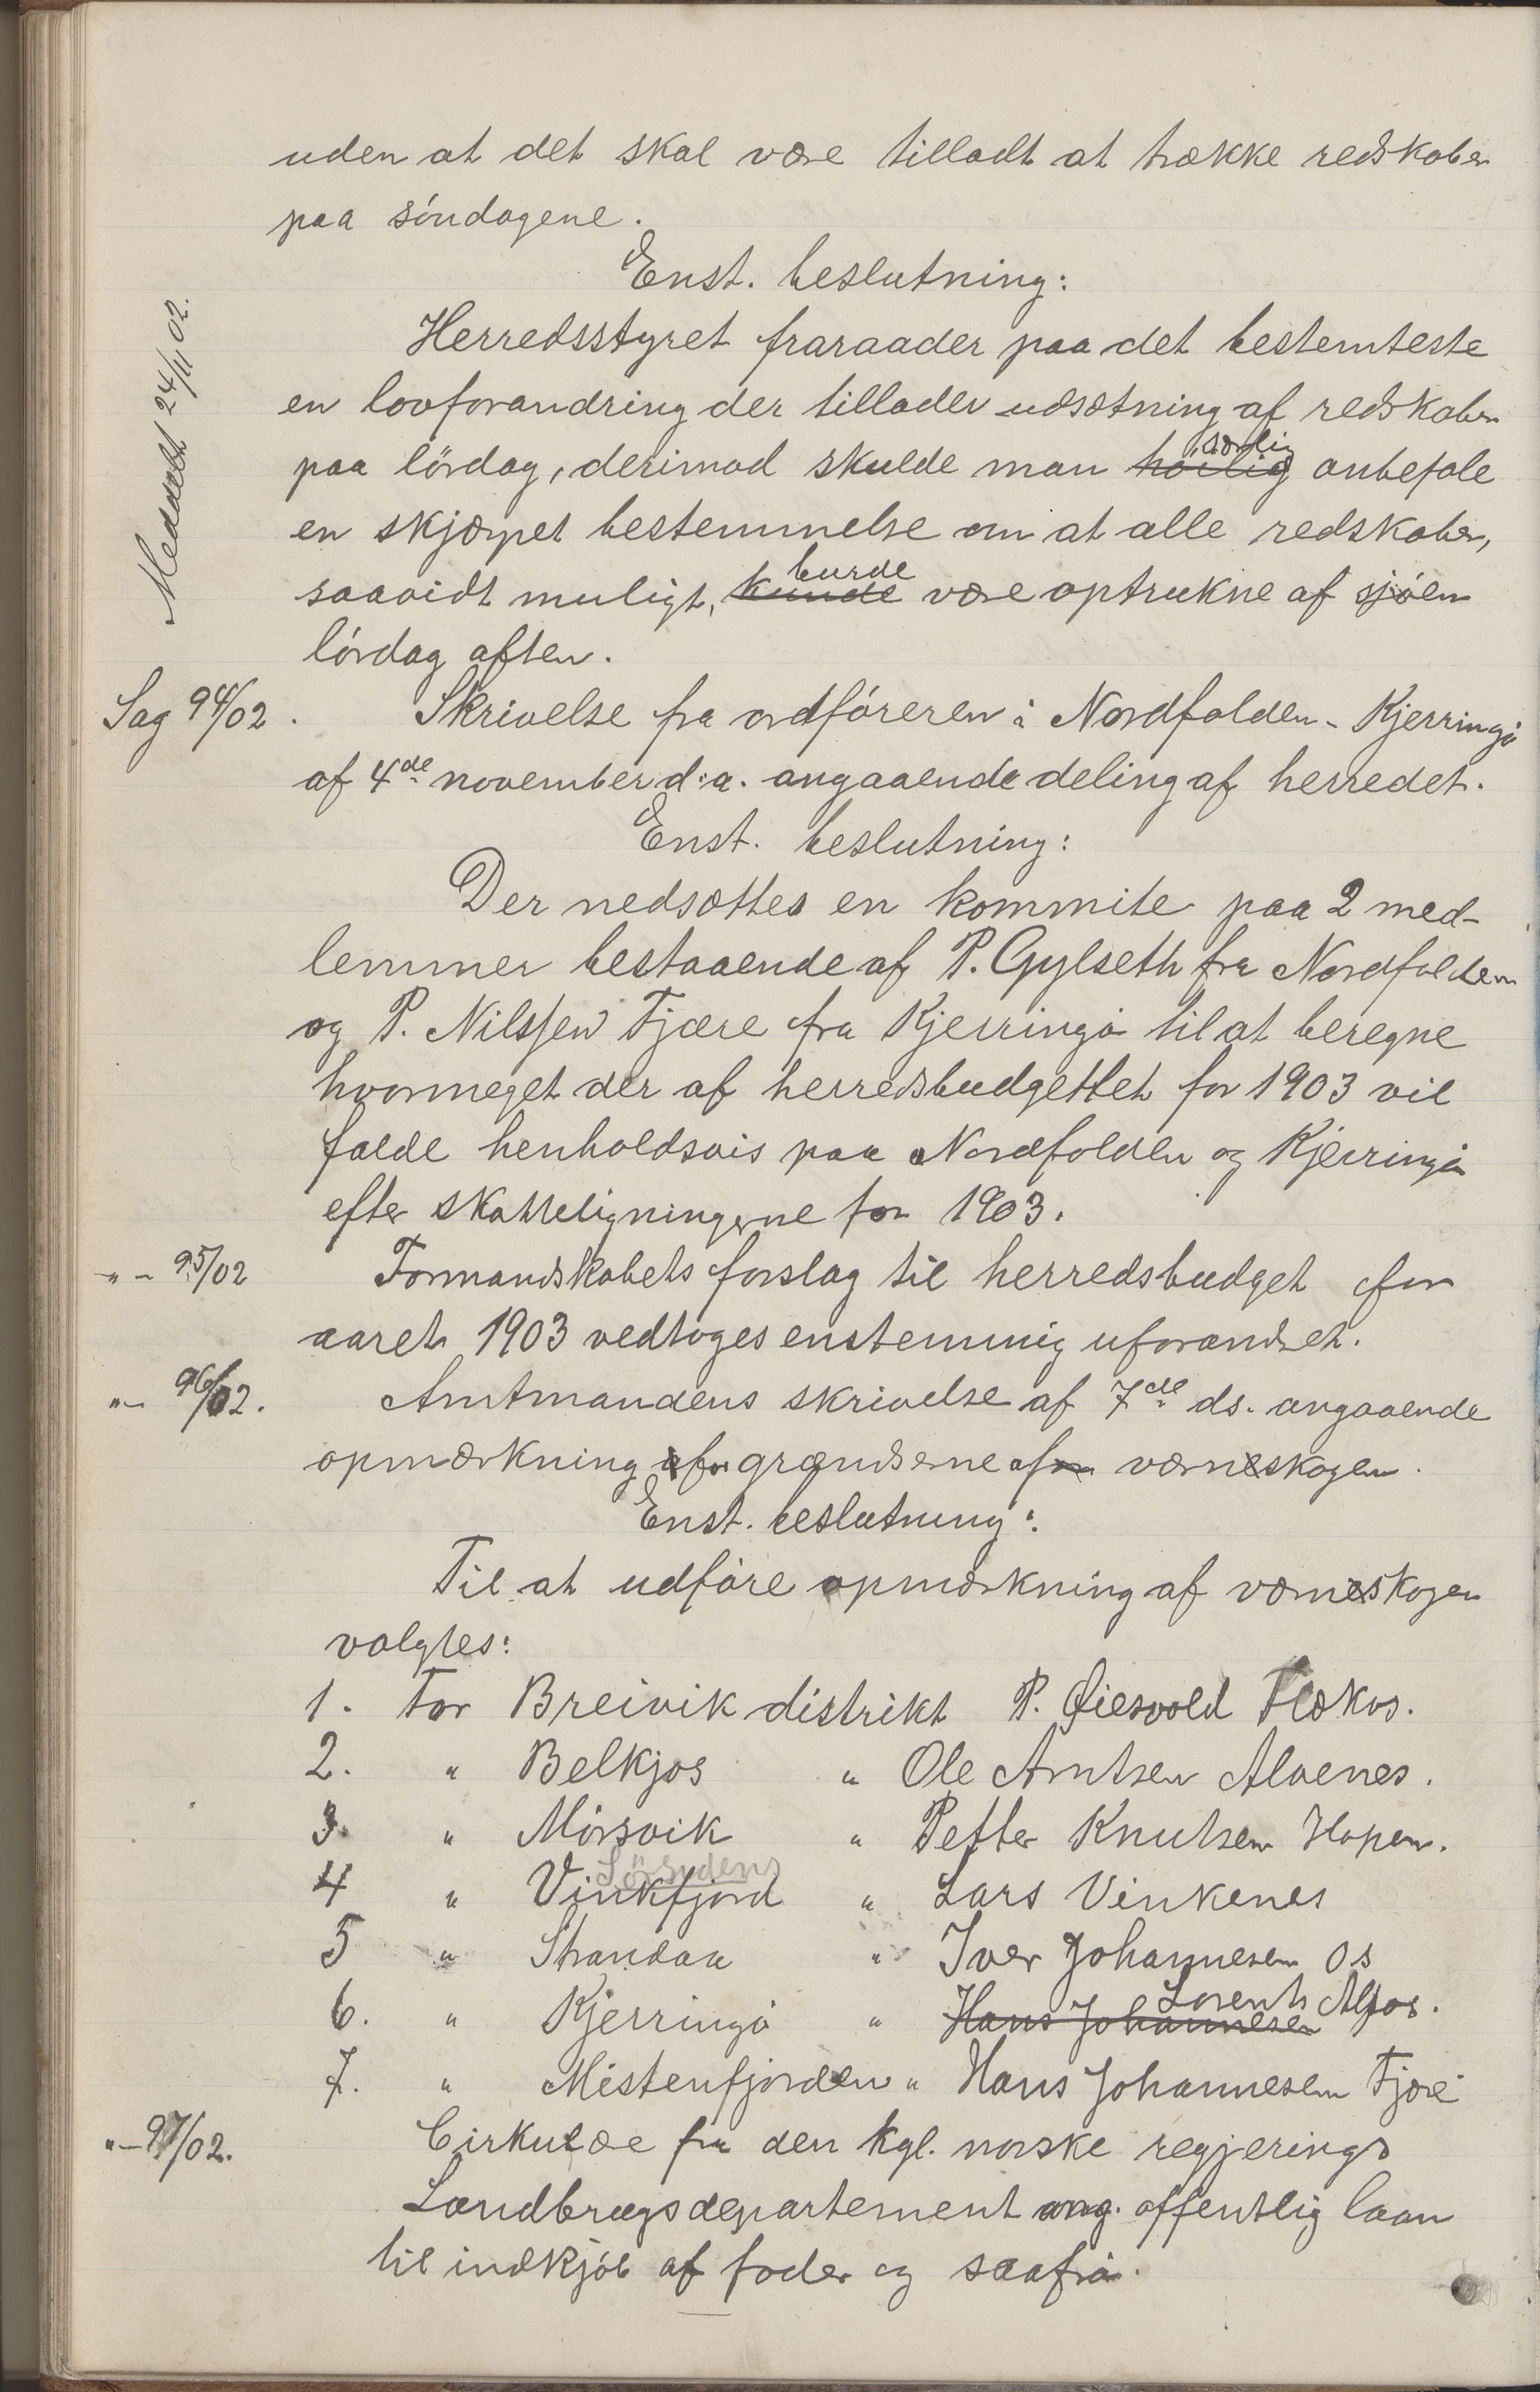 uden at det skal være tilladt at trække redskaber
paa söndagene.
Enst. beslutning:
Meddelt 24/11 02.
Herredsstyret fraraader paa det bestemteste
en lovforandring der tillader udsætning af redskaber
paa lördag, derimod skulde man höilig særlig anbefale
en skjærpet bestemmelse om at alle redskaber,
saavidt muligt, kunde burde være optrukne af sjöen
lördag aften.
Sag 94/02. Skrivelse fra ordföreren i Nordfolden-Kjerringö
af 4de november d.a. angaaende deling af herredet.
Enst. beslutning:
Der nedsættes en kommite paa 2 med-
lemmer bestaaende af P. Gylseth fra Nordfolden
og P. Nilssen Fjære fra Kjerringö til at beregne
hvormeget der af herredsbudgettet for 1903 vil
falde henholdsvis paa Nordfolden og Kjerringö
efter skatteligningerne for 1903.
"- 95/02 Formandskabets forslag til herredsbudget for
aaret 1903 vedtoges enstemmig uforandret.
"- 96/02. Amtmandens skrivelse af 7de ds. angaaende
opmærkning af grændserne for værneskogen.
Enst. beslutning:
Til at udföre opmærkning af værneskogen
valgtes:
1. For Breivik distrikt P. Øiesvold Flækos.
2. " Belkjos " Ole Arntsen Alvenes.
3. " Mörsvik " Petter Knutsen Hopen.
Sörsydens
4 " Vinkfjord " Lars Vinkenes
5 " Strandaa " Iver Johannesen Os
6. " Kjerringö " Hans Johannesen Lorents Alsos.
7. " Mistenfjorden " Hans Johannesen Fjære
"- 97/02. Cirkulære fra den kgl. norske regjerings
Landbrugsdepartement ang. offentlig laan
til indkjöb af foder og saafrö.